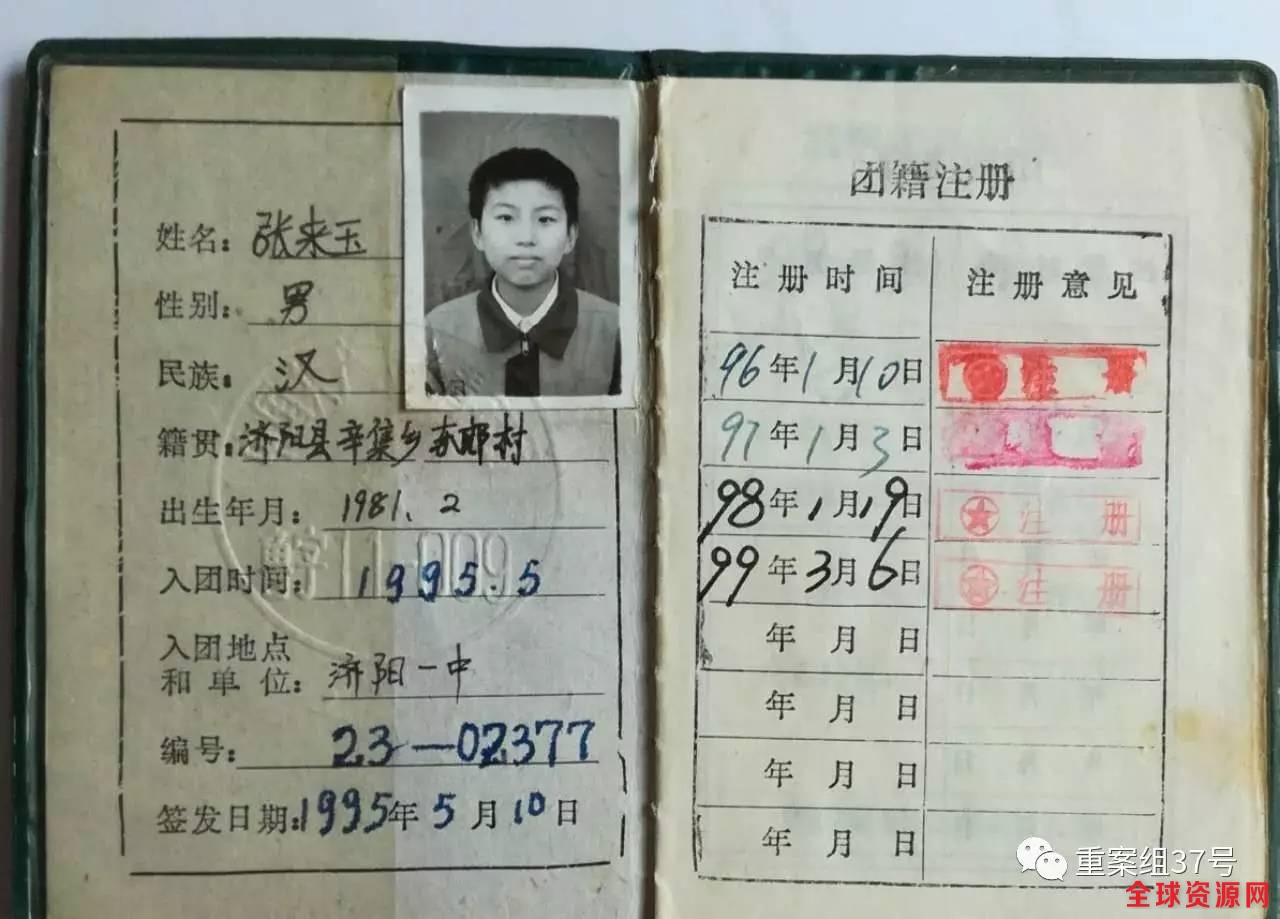 姓名：张来玉
性别：男
民族：汉
籍贯：济阳县辛集乡
出生年月：1981.2
入团时间：1995.5
入团地点
和单位：济阳一中
编号：23—02377
签发日期：1995年5月10日
团籍注册
注册时间 注册意见
96年1月10日 注
97年1月3日
98年1月19日 注册
99年3月6日 注册
年 月 日
年 月 日
年 月 日
年 月 日
重案组37号
全球资源网